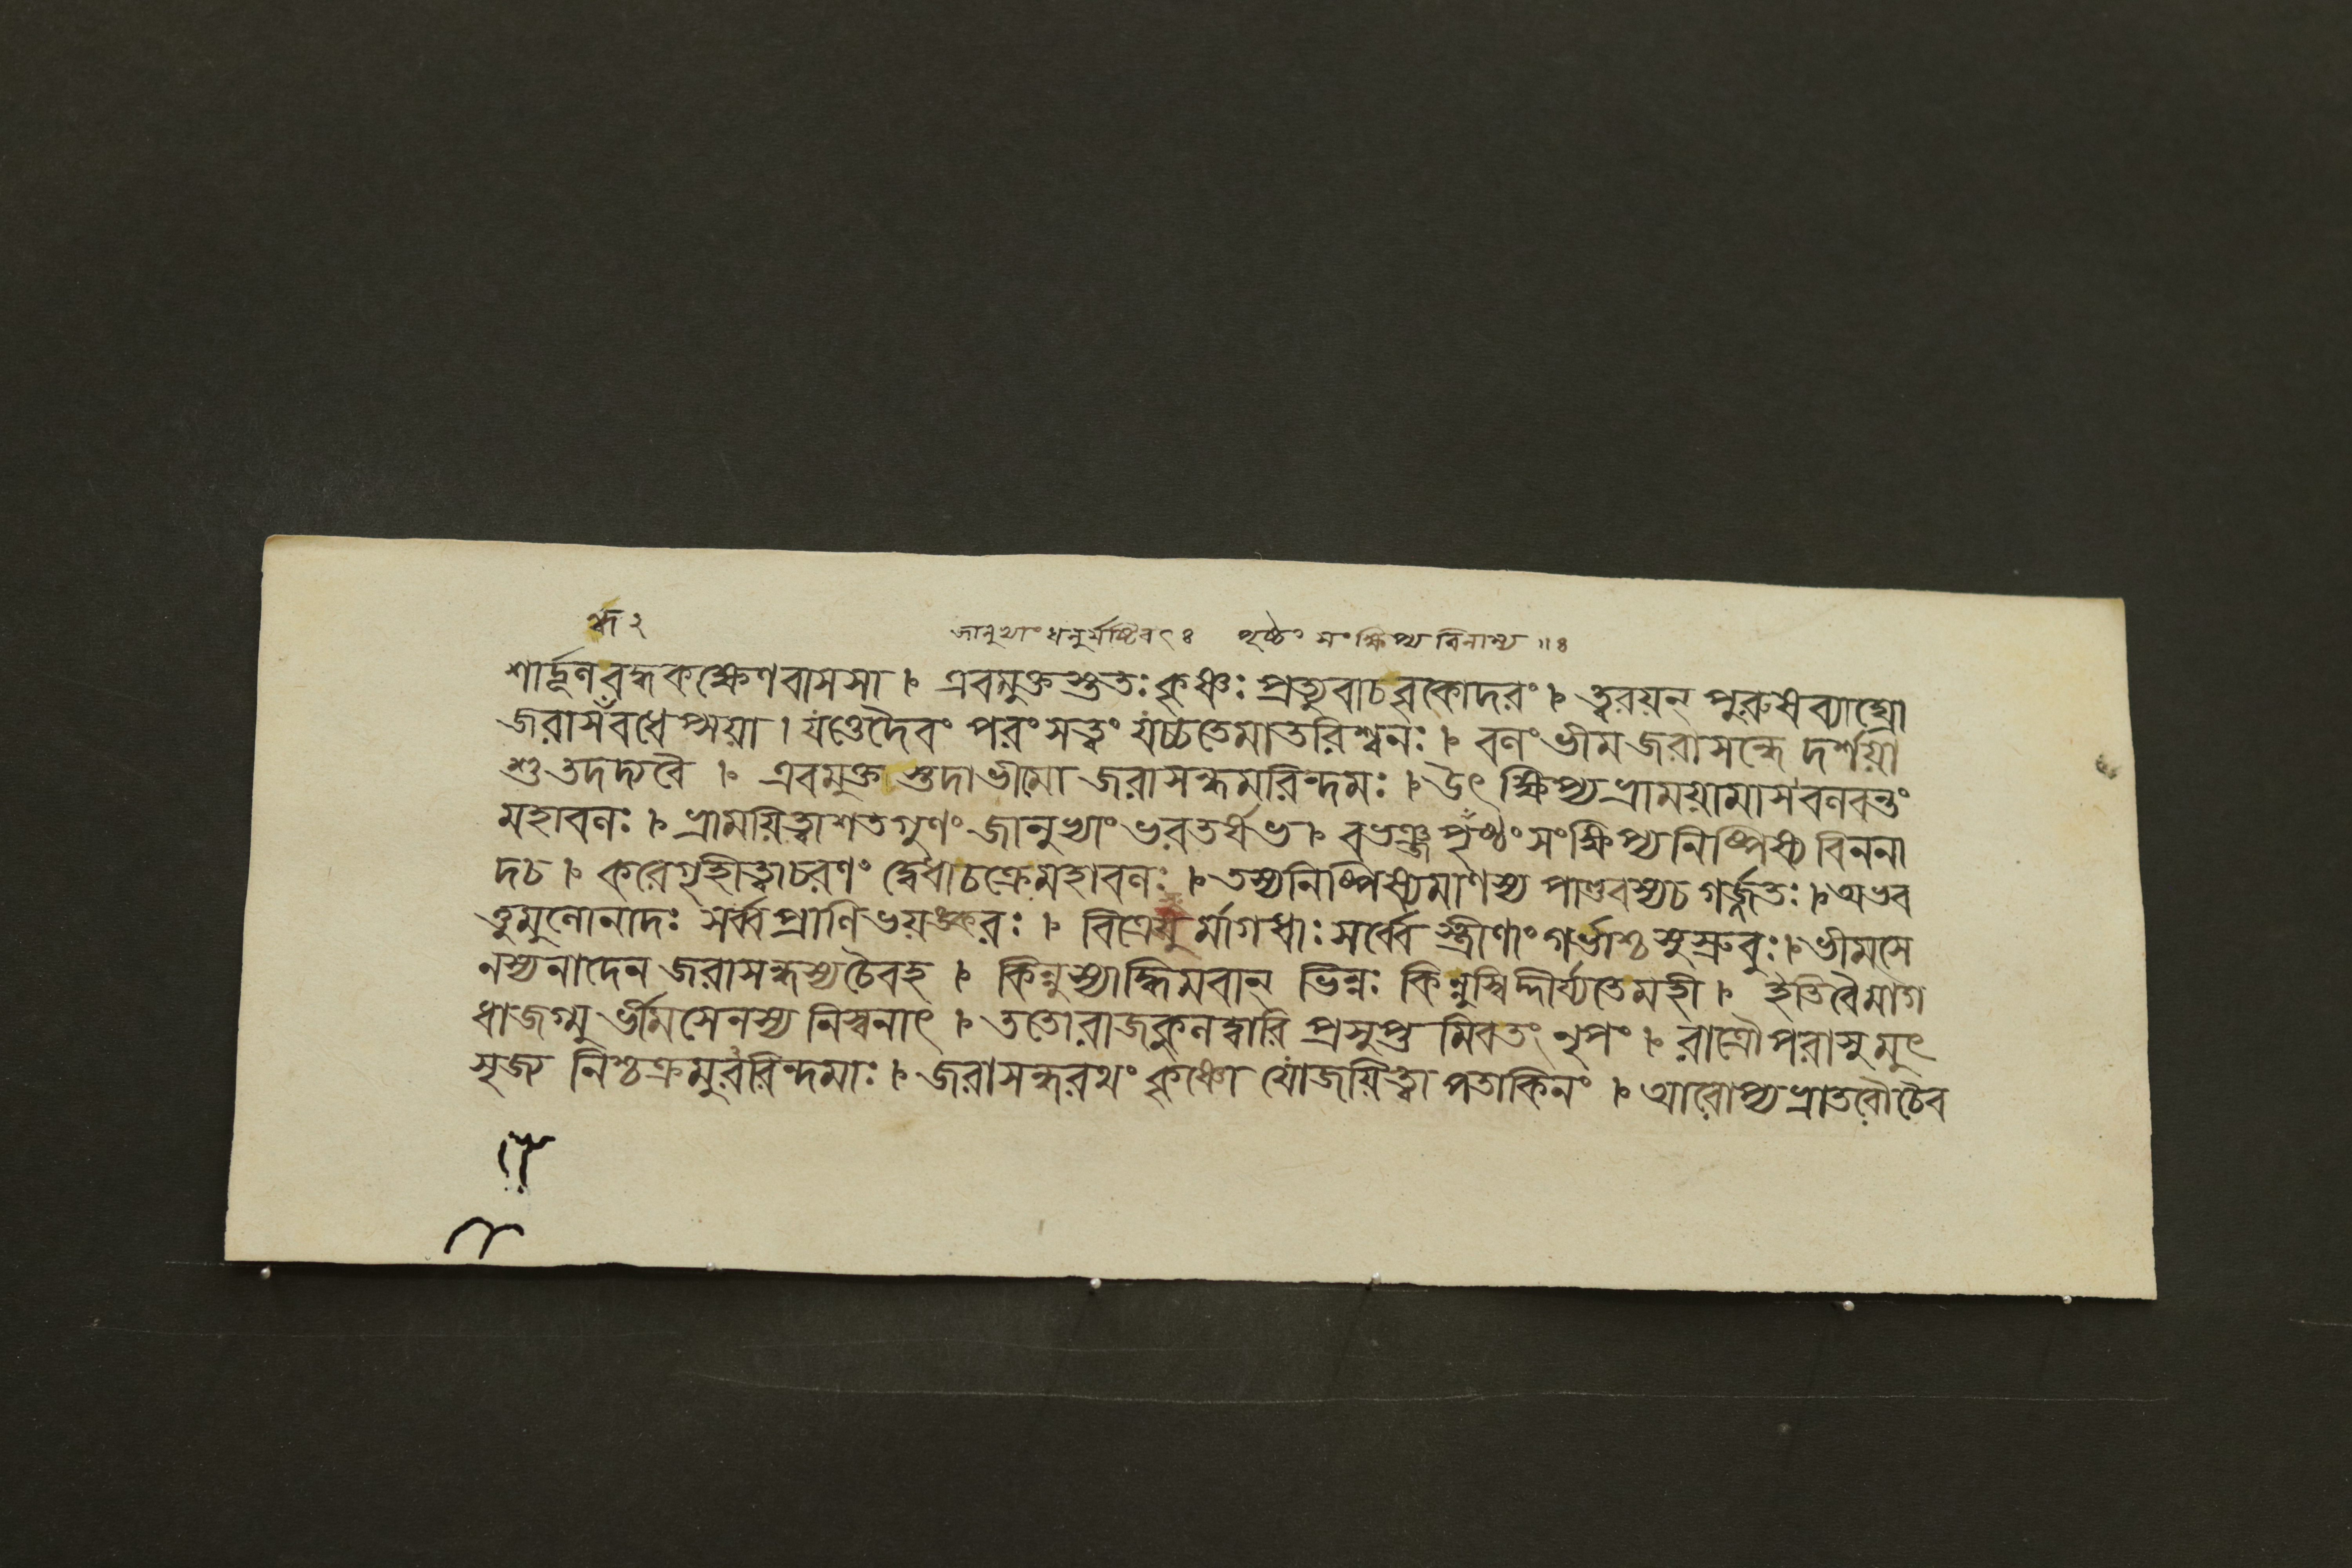 জানুভ্যাং ধনুর্যষ্টিবৎঃ পৃষ্ঠং সংক্ষিপ্য বিনাম্য ॥ঃ
শার্দ্দূলবদ্ধকক্ষেণবাসসা । এবমুক্তস্তুতঃ কৃষ্ণঃ প্রত্যুবাচবৃকোদরং । ত্বরয়ন্ পুরুষব্যাঘ্রো
জরাসঁবধেপ্সয়া । যত্তেদৈবং পরংসত্ত্বং যচ্চতেমাতরিশ্বনঃ । বলং ভীম জরাসন্ধে দর্শয়া
শু তদদ্যবৈ । এবমুক্ত স্তদাভীমো জরাসন্ধমরিন্দমঃ । উৎ ক্ষিপ্যভ্রাময়ামাস বলবন্তং
মহাবলঃ । ভ্রাময়িত্বাশতগুণং জানুভ্যাং ভরতর্ষভ । বভঞ্জ পৃষ্ঠং সংক্ষিপ্য নিষ্পিষ্য বিননা
দচ । করেগৃহীত্বাচরণং দ্বেধাচক্রেমহাবলঃ । তস্যনিষ্পিষ্যমাণস্য পাণ্ডবস্যচ গর্জ্জতঃ । অভব
ত্তুমুলোনাদঃ সর্ব্বপ্রাণিভয়ঙ্করঃ । বিত্রেসু র্মাগধাঃ সর্ব্বে স্ত্রীণাং গর্ভাশ্চসুস্রুবুঃ । ভীমসে
নস্যনাদেন জরাসন্ধস্যচৈবহ । কিন্নুস্যাদ্ধিমবান্ ভিন্নঃ কিন্নুস্বিদ্দীর্য্যতেমহী । ইতিবৈমাগ
ধাজগ্মু র্ভীমসেনস্য নিস্বনাৎ । ততোরাজকুলদ্বারি প্রসুপ্ত মিবতং নৃপং । রাত্রৌপরাসুমুৎ
সৃজ্য নিশ্চক্রমুররিন্দমাঃ । জরাসন্ধরথং কৃষ্ণো যোজয়িত্বা পতাকিনং । আরোপ্যভ্রাতরৌচৈব